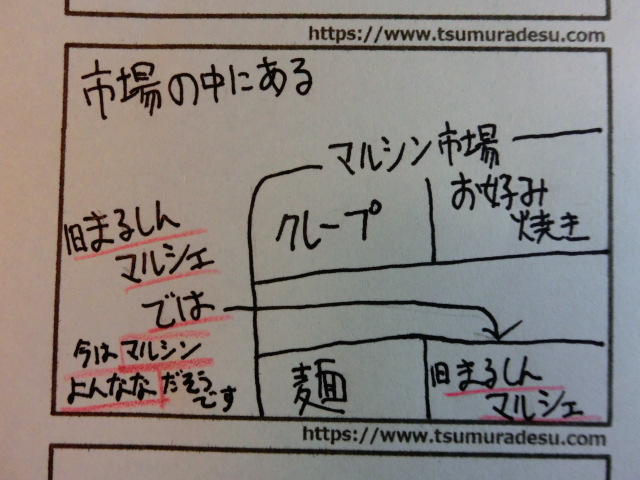 https://www.tsumuradesu.com
市場の中にある
マルシン市場
クレープ
お好み
焼き
旧まるしん
マルシェ
では
今はマルシン
よんななだそう
です
麺
旧まるしん
マルシェ
https://www.tsumuradesu.com